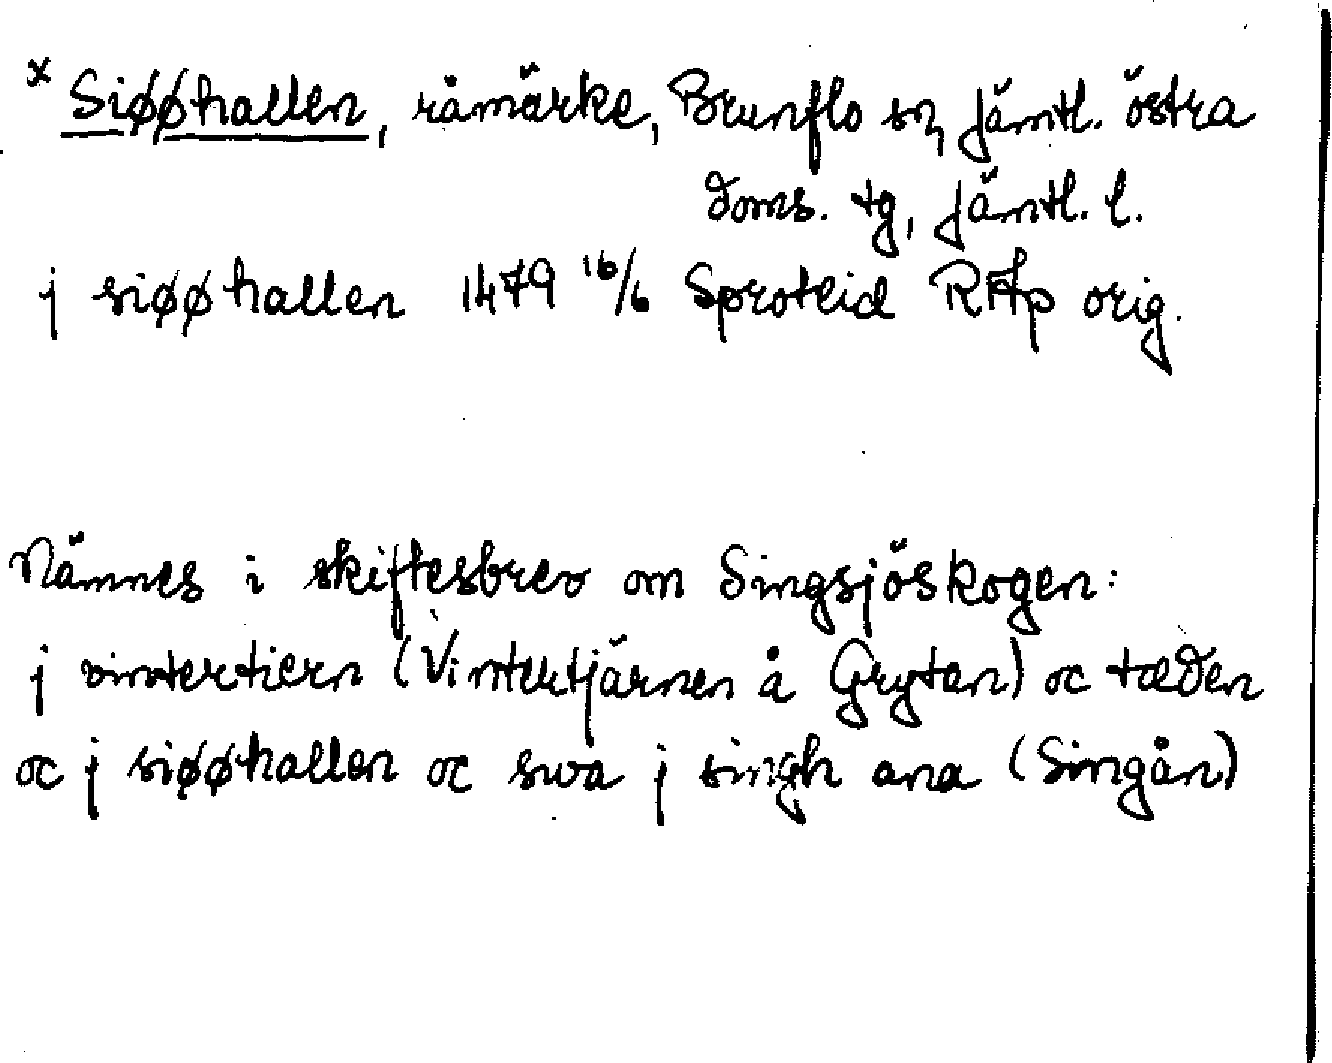 x Siøøhallen, råmärke, Brunflo sn, Jämtl. östra
doms. tg, Jämtl. l.
j siøøhallen 1479 16/6 Sproteid RAp orig.
Nämnes i skiftesbrev om Singsjöskogen:
j vintertiern (Vintertjärnen å Grytan) oc tæden
oc j siøøhallen oc swa j singh ana (Singån)